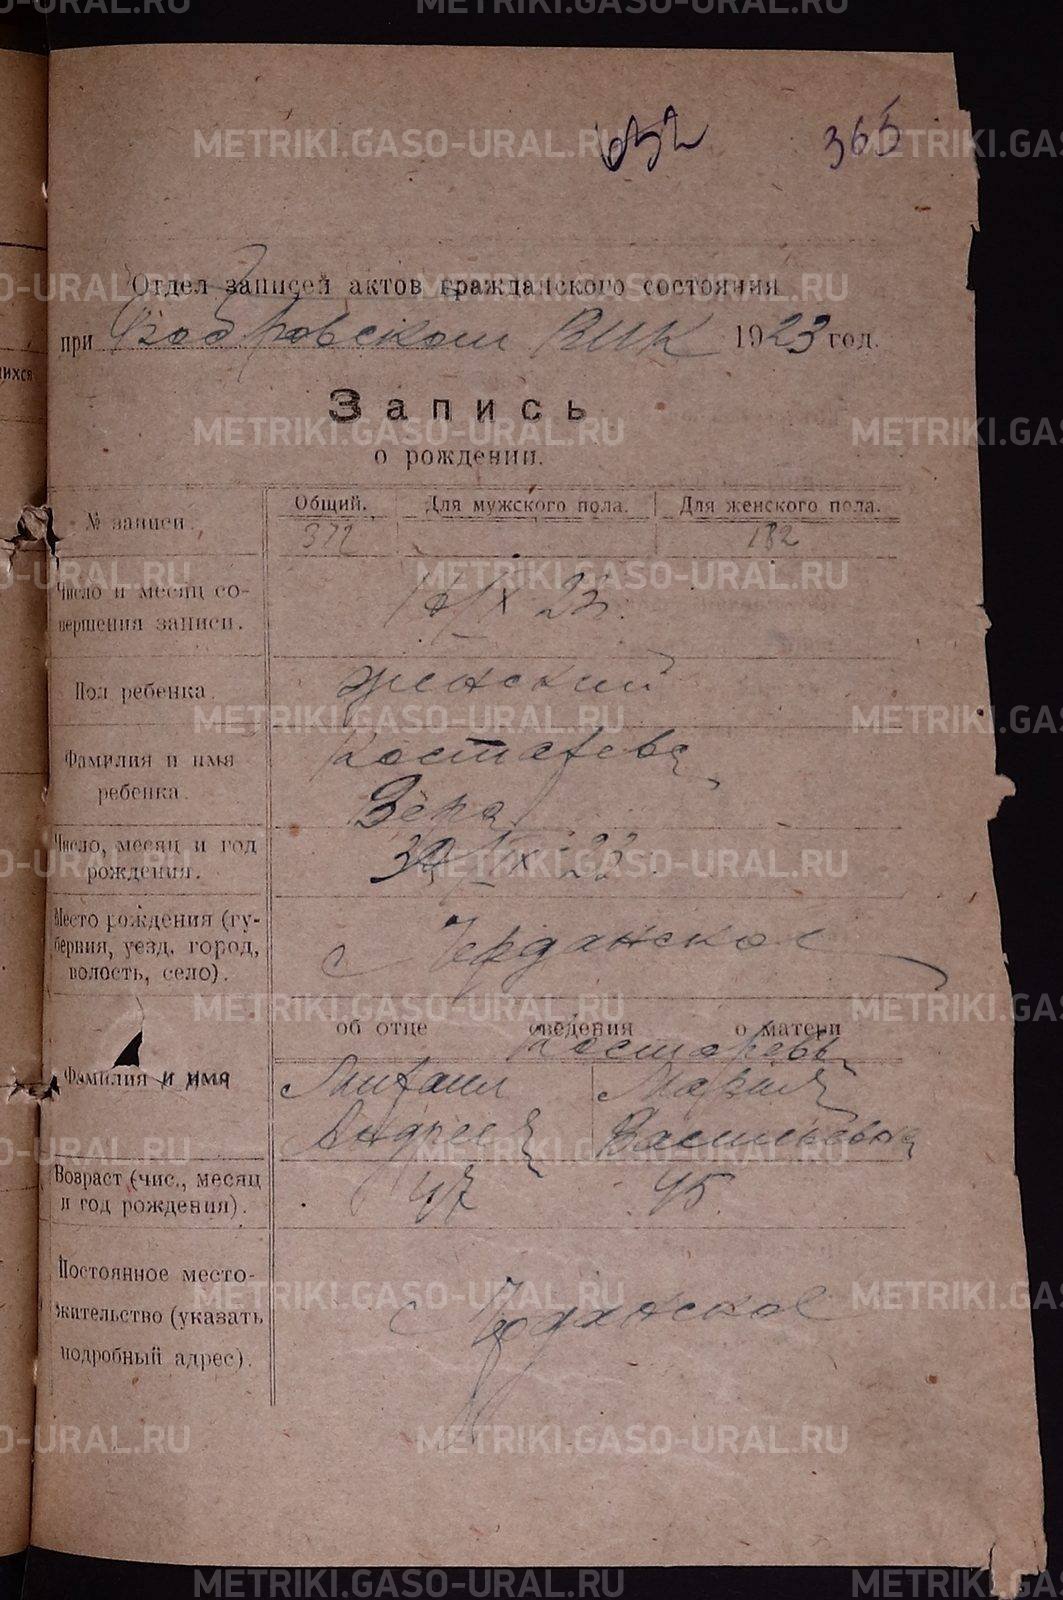 652 365
Отдел записей актов гражданского состояния
при Бобровском ВИК 1923 год.
Запись
о рождении.
№ записи. Общий. Для мужского пола. Для женского пола.
372 182
Число и месяц со-
вершения записи. /IX 23.
Пол ребенка. женский
Фамилия и имя
ребенка. Костарева
Вера
Число, месяц и год
рождения. 30/IX - 23.
Место рождения (гу-
берния, уезд, город,
волость, село). с
об отце сведения о матери
Костаревы
Фамилия и имя Михаил Мария
Андреев Васильевна
Возраст (чис., месяц
и год рождения). 47 45.
Постоянное место-
жительство (указать
подробный адрес). с
ихся
METRIKI.GASO-URAL.RU